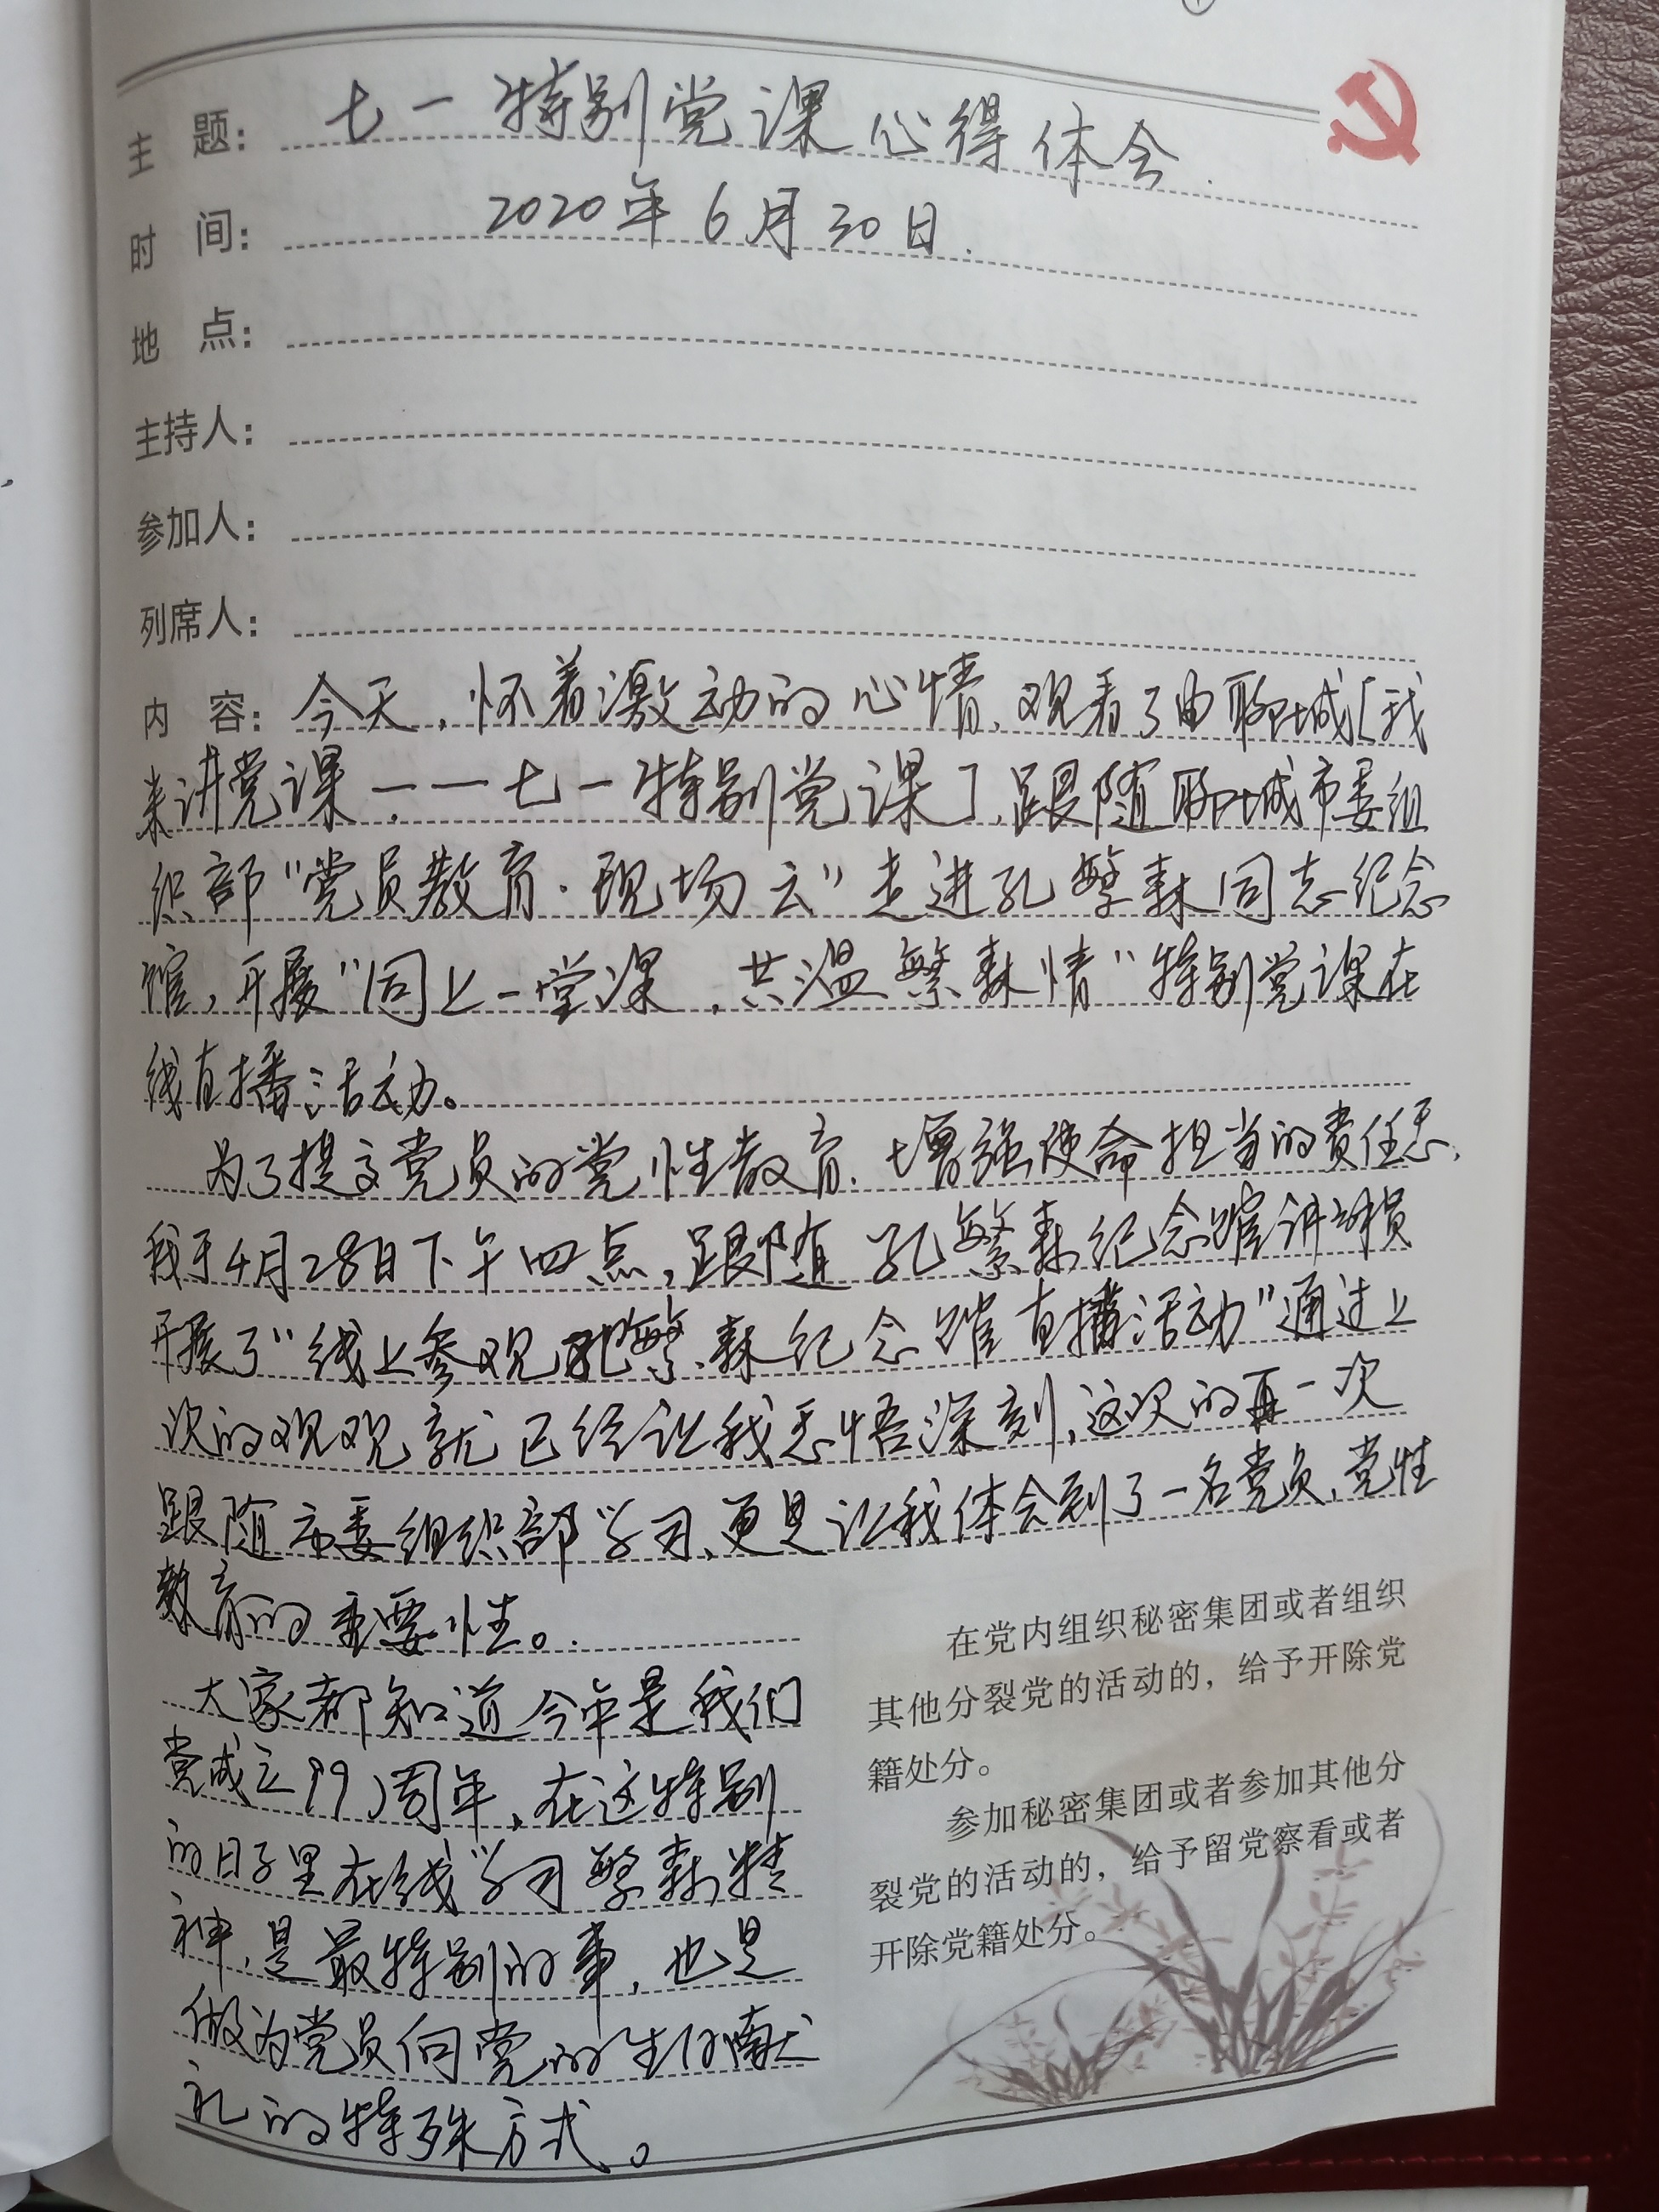 主 题： 七一特别党课心得体会.
时 间： 2020年6月30日.
地 点：
主持人：
参加人：
列席人：
内 容： 今天，怀着激动的心情，观看了由聊城[我
来讲党课——七一特别党课]，跟随聊城市委组
织部“党员教育·现场云”走进孔繁森同志纪念
馆，开展“同上一堂课，共温繁森情”特别党课在
线直播活动。
为了提高党员的党性教育，增强使命担当的责任感，
我于4月28日下午四点，跟随孔繁森纪念馆讲解员
开展了“线上参观孔繁森纪念馆直播活动”通过上
次的观观就已经让我感悟深刻，这次的再一次
跟随市委组织部学习，更是让我体会到了一名党员，党性
教育的重要性。
大家都知道今年是我们
党成立99周年，在这特别
的日子里在线学习繁森精
神，是最特别的事，也是
做为党员向党的生日献
礼的特殊方式。
在党内组织秘密集团或者组织
其他分裂党的活动的，给予开除党
籍处分。
参加秘密集团或者参加其他分
裂党的活动的，给予留党察看或者
开除党籍处分。